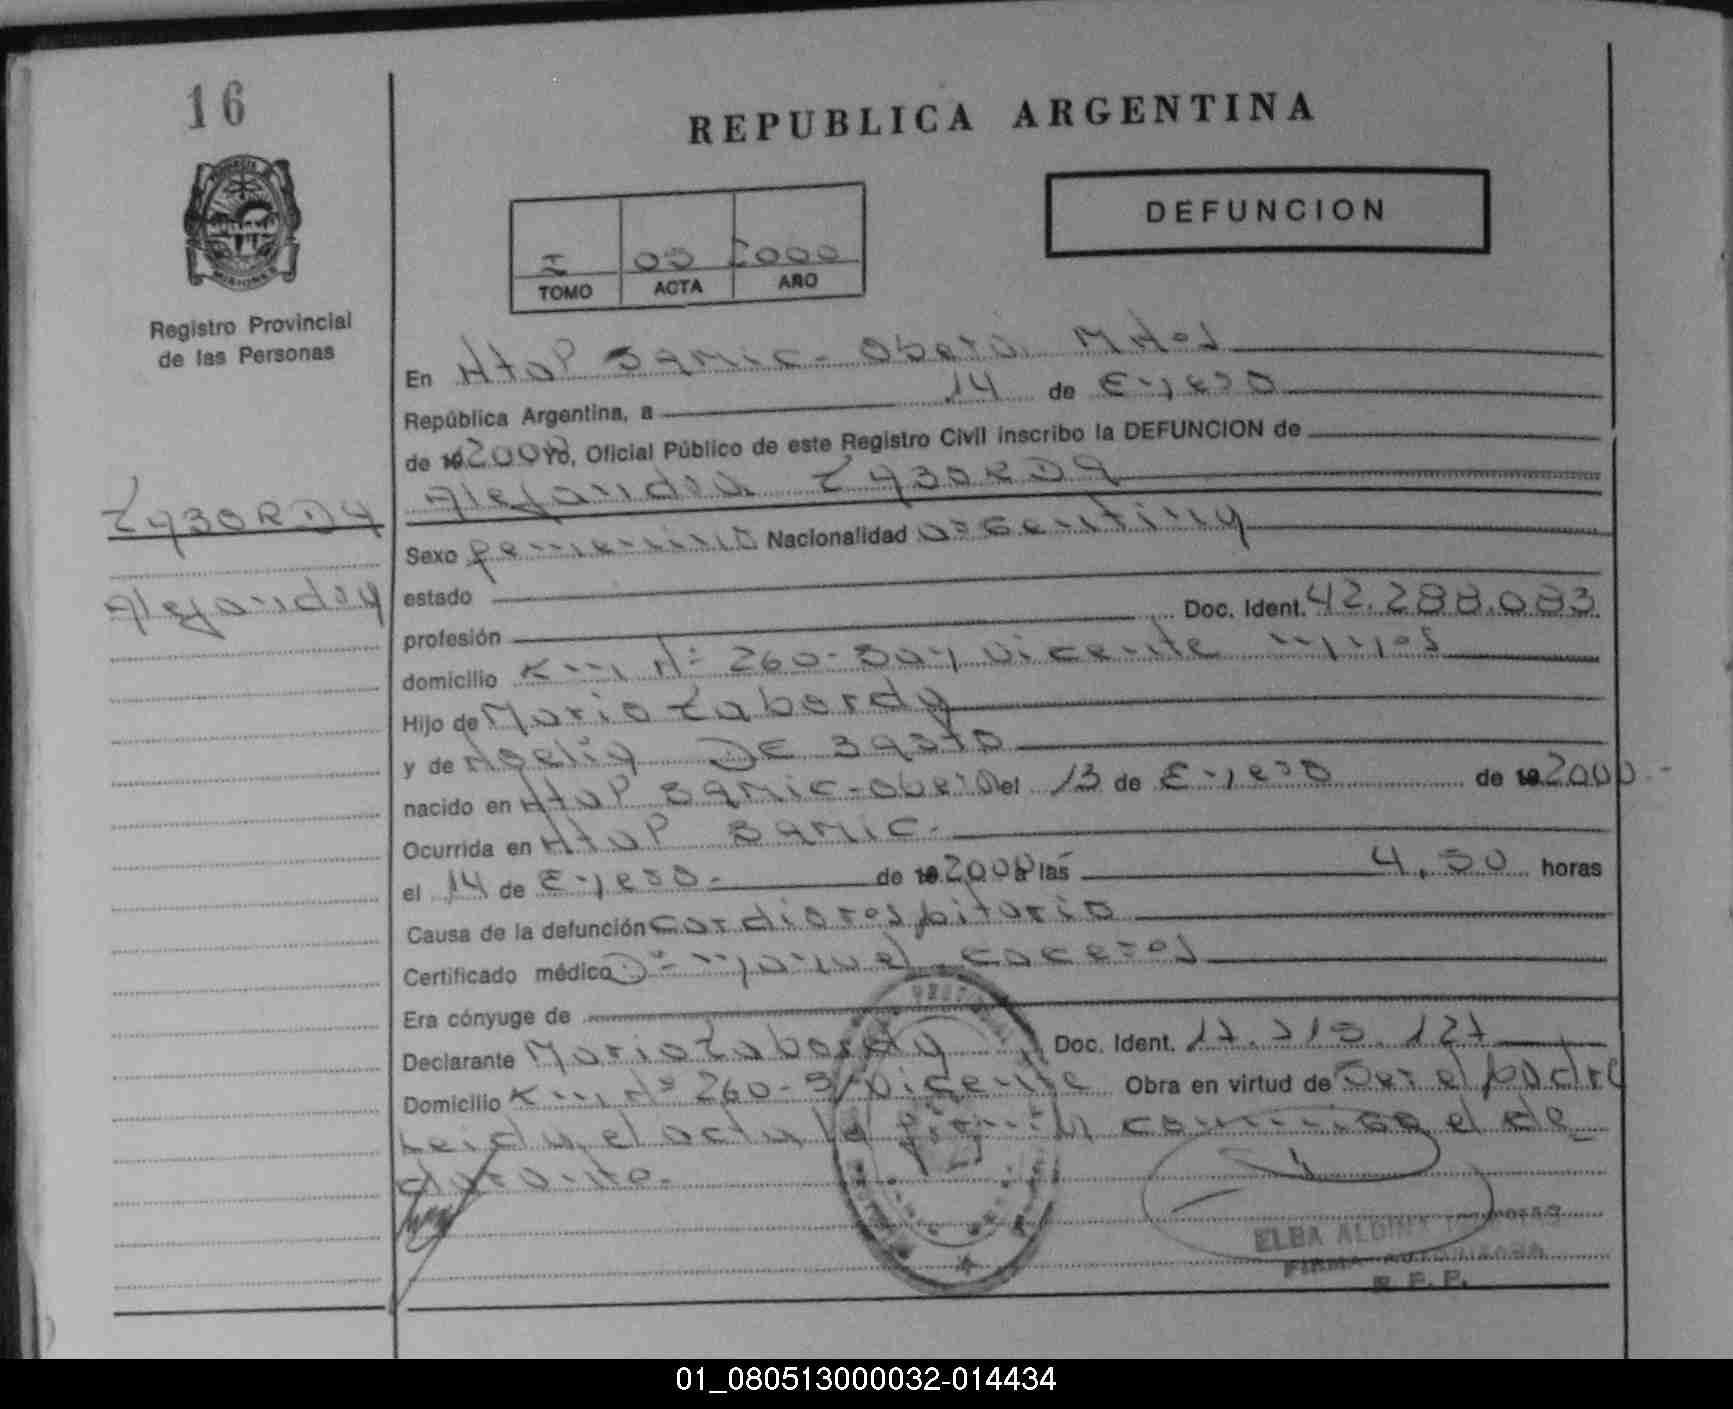 16
REPUBLICA ARGENTINA
DEFUNCION
I 2000
TOMO ACTA AÑO
Registro Provincial
de las Personas
En Htal Samic - Obera. Mnes
República Argentina, a 14 de Enero
de 2000 Yo, Oficial Público de este Registro Civil inscribo la DEFUNCION de
LABORDA
Alejandra LABORDA
Sexo femenino Nacionalidad argentina
Alejandra
estado
profesión Doc. Ident. 42.288.083
domicilio Km Nº 260 - San Vicente mnes
Hijo de Mario Laborda
y de Noelia DE
nacido en Htal SAMIC - Obera el 13 de Enero de 19 2000
Ocurrida en Htal SAMIC.
el 14 de Enero. de 19 2000 a las 4,50 horas
Causa de la defunción cardiorespitorio
Certificado médico Dr manuel caceres
Era cónyuge de
Declarante Mario Laborda Doc. Ident. 17.
Domicilio Km Nº 260 - S/Vicente Obra en virtud de Ser el padre
Leida el acta la firma conmigo el de
clarante.
ELBA
FIRMA AUTORIZADA
R. P. P.
01_080513000032-014434